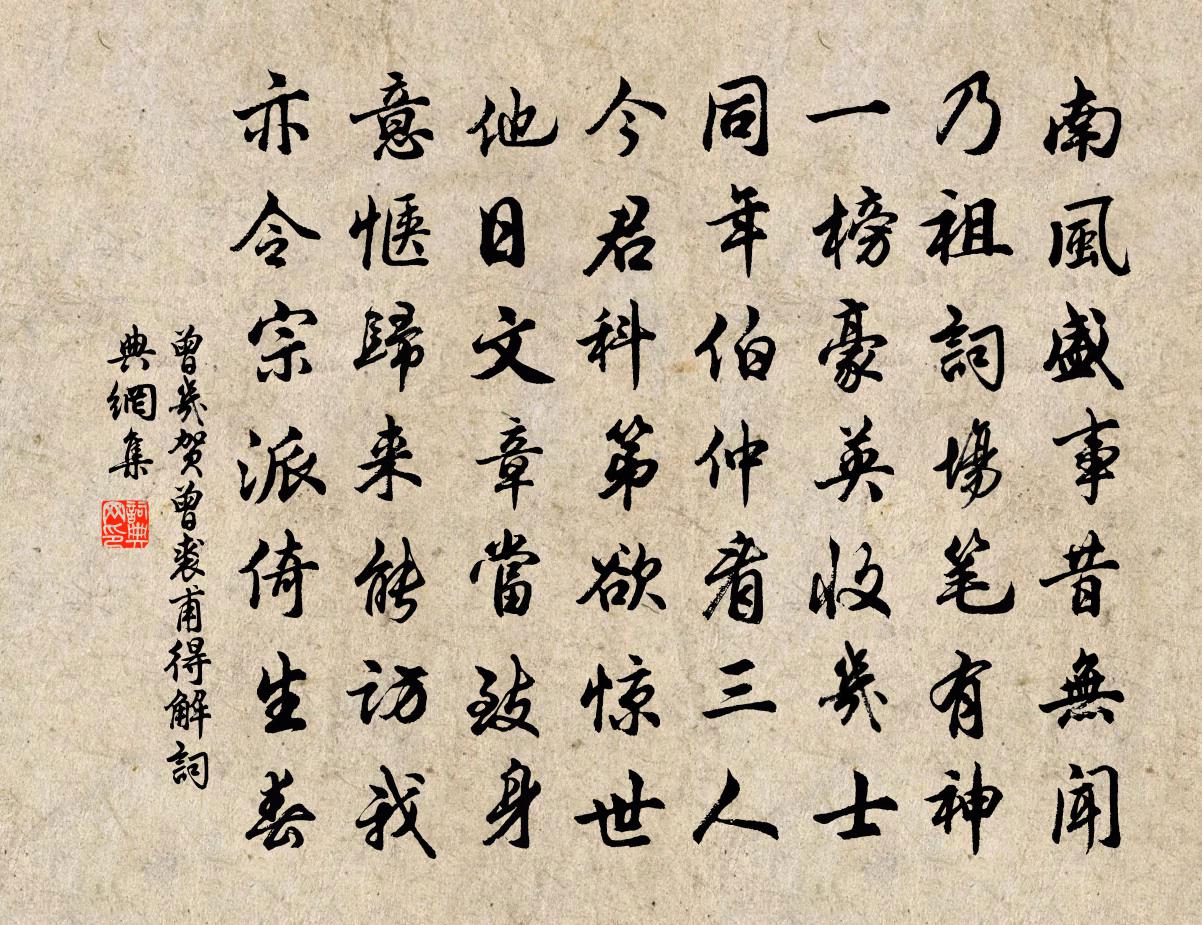 南風盛事昔無聞
乃祖詞場笔有神
一榜豪英收幾士
同年伯仲看三人
今君科第欲惊世
他日文章當致身
意愜歸来能访我
亦令宗派倚生春
曾幾贺曾裘甫得解詞
典網集
詞典
网印